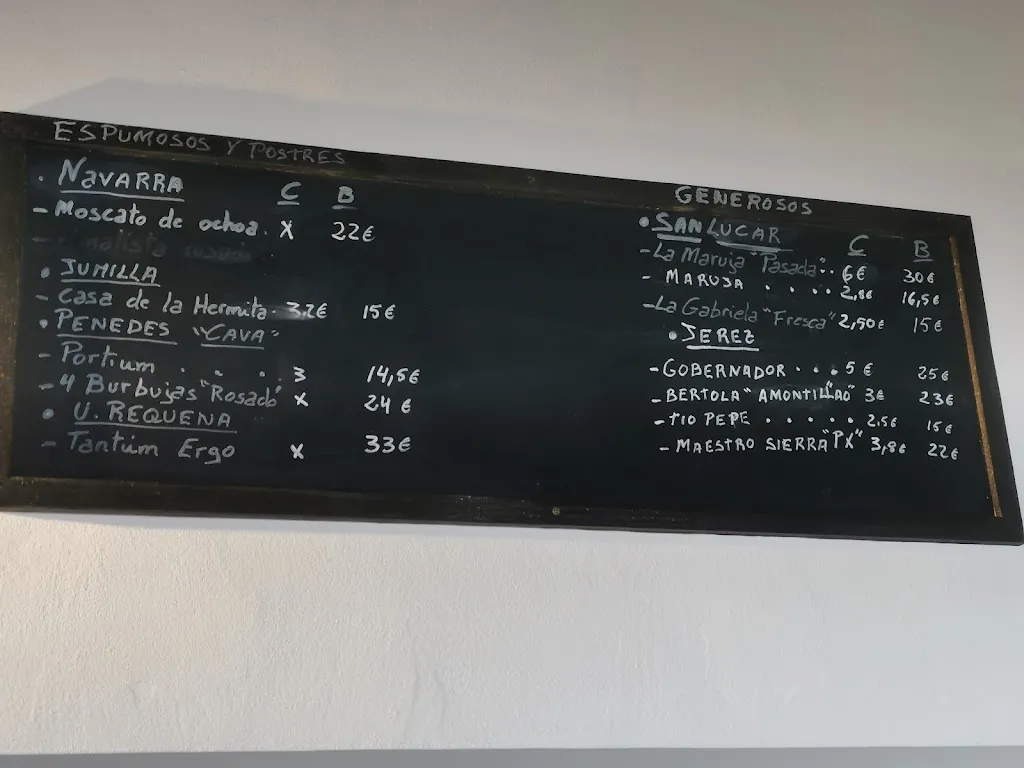 ESPUMOSOS Y POSTRES
• NAVARRA C B
- Moscato de ochoa. X 22€
• JUMILLA
- Casa de la Hermita. 3.2€ 15€
• PENEDES "CAVA"
- Portium . . . 3 14,5€
- 4 Burbujas "Rosado" X 24 €
• U. REQUENA
- Tantum Ergo X 33€
GENEROSOS
• SAN LUCAR C B
- La Maruja "Pasada".. 6€ 30€
- MARUJA . . . . 2,8€ 16,5€
- La Gabriela "Fresca" 2,50€ 15€
• JEREZ
- GOBERNADOR . . . 5 € 25€
- BERTOLA "AMONTILLAO" 3€ 23€
- TIO PEPE . . . . . 2.5€ 15€
- MAESTRO SIERRA "PX" 3,8€ 22€